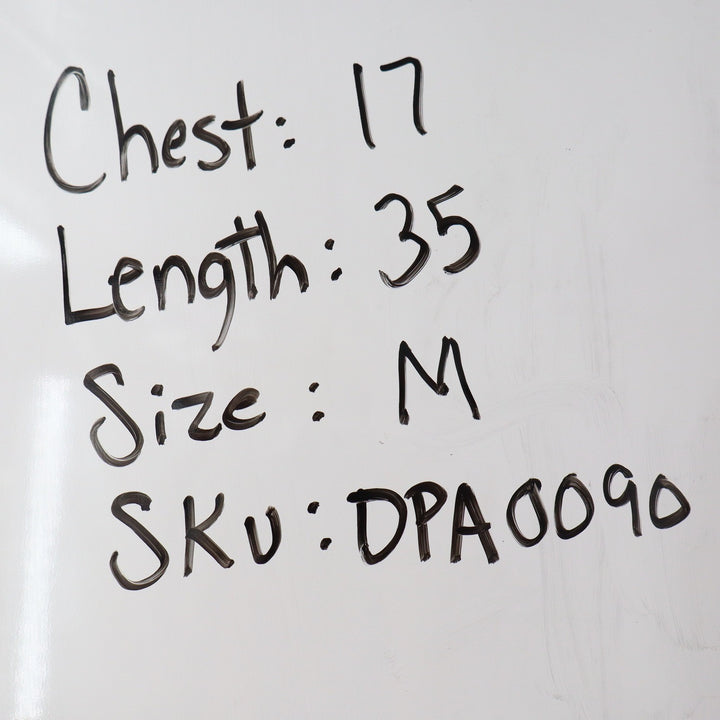 Chest: 17
Length: 35
Size: M
SKU: DPA0090